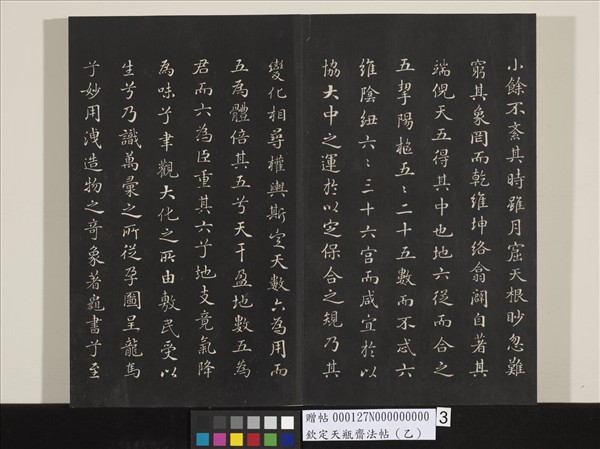 小餘不紊其時雖月窟天根眇忽難
窮其象罔而乾維坤絡翕闢自著其
端倪天五得其中也地六從而合之
五挈陽樞五〻二十五數而不忒六
維陰紐六〻三十六宮而咸宜於以
協大中之運於以定保合之規乃其
變化相尋權輿斯定天數六為用而
五為體倍其五兮天干盈地數五為
君而六為臣重其六兮地支竟氣降
為味兮聿觀大化之所由敷民受以
生兮乃識萬彙之所從孕圖呈龍馬
兮妙用洩造物之奇象著龜書兮至
贈帖 000127N000000000
欽定天瓶齋法帖（乙）
3